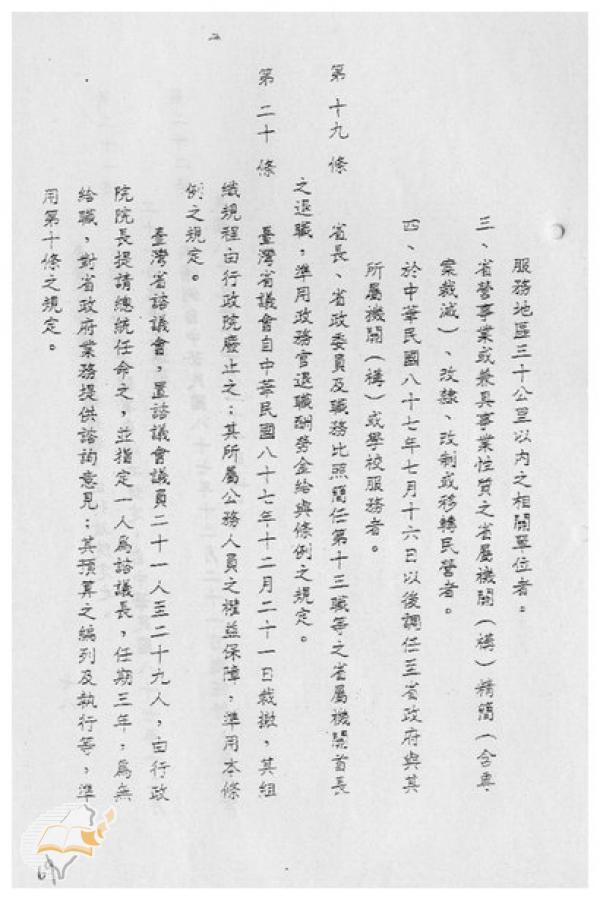 服務地區三十公里以內之相關單位者。
三、省營事業或兼具事業性質之省屬機關(構)精簡(含專
案裁減)、改隸、改制或移轉民營者。
四、於中華民國八十七年七月十六日以後調任至省政府與其
所屬機關(構)或學校服務者。
第十九條 省長、省政委員及職務比照簡任第十三職等之省屬機關首長
之退職,準用政務官退職酬勞金給與條例之規定。
第二十條 臺灣省議會自中華民國八十七年十二月二十一日裁撤,其組
織規程由行政院廢止之;其所屬公務人員之權益保障,準用本條
例之規定。
臺灣省諮議會,置諮議會議員二十一人至二十九人,由行政
院院長提請總統任命之,並指定一人為諮議長,任期三年,為無
給職,對省政府業務提供諮詢意見;其預算之編列及執行等,準
用第十條之規定。